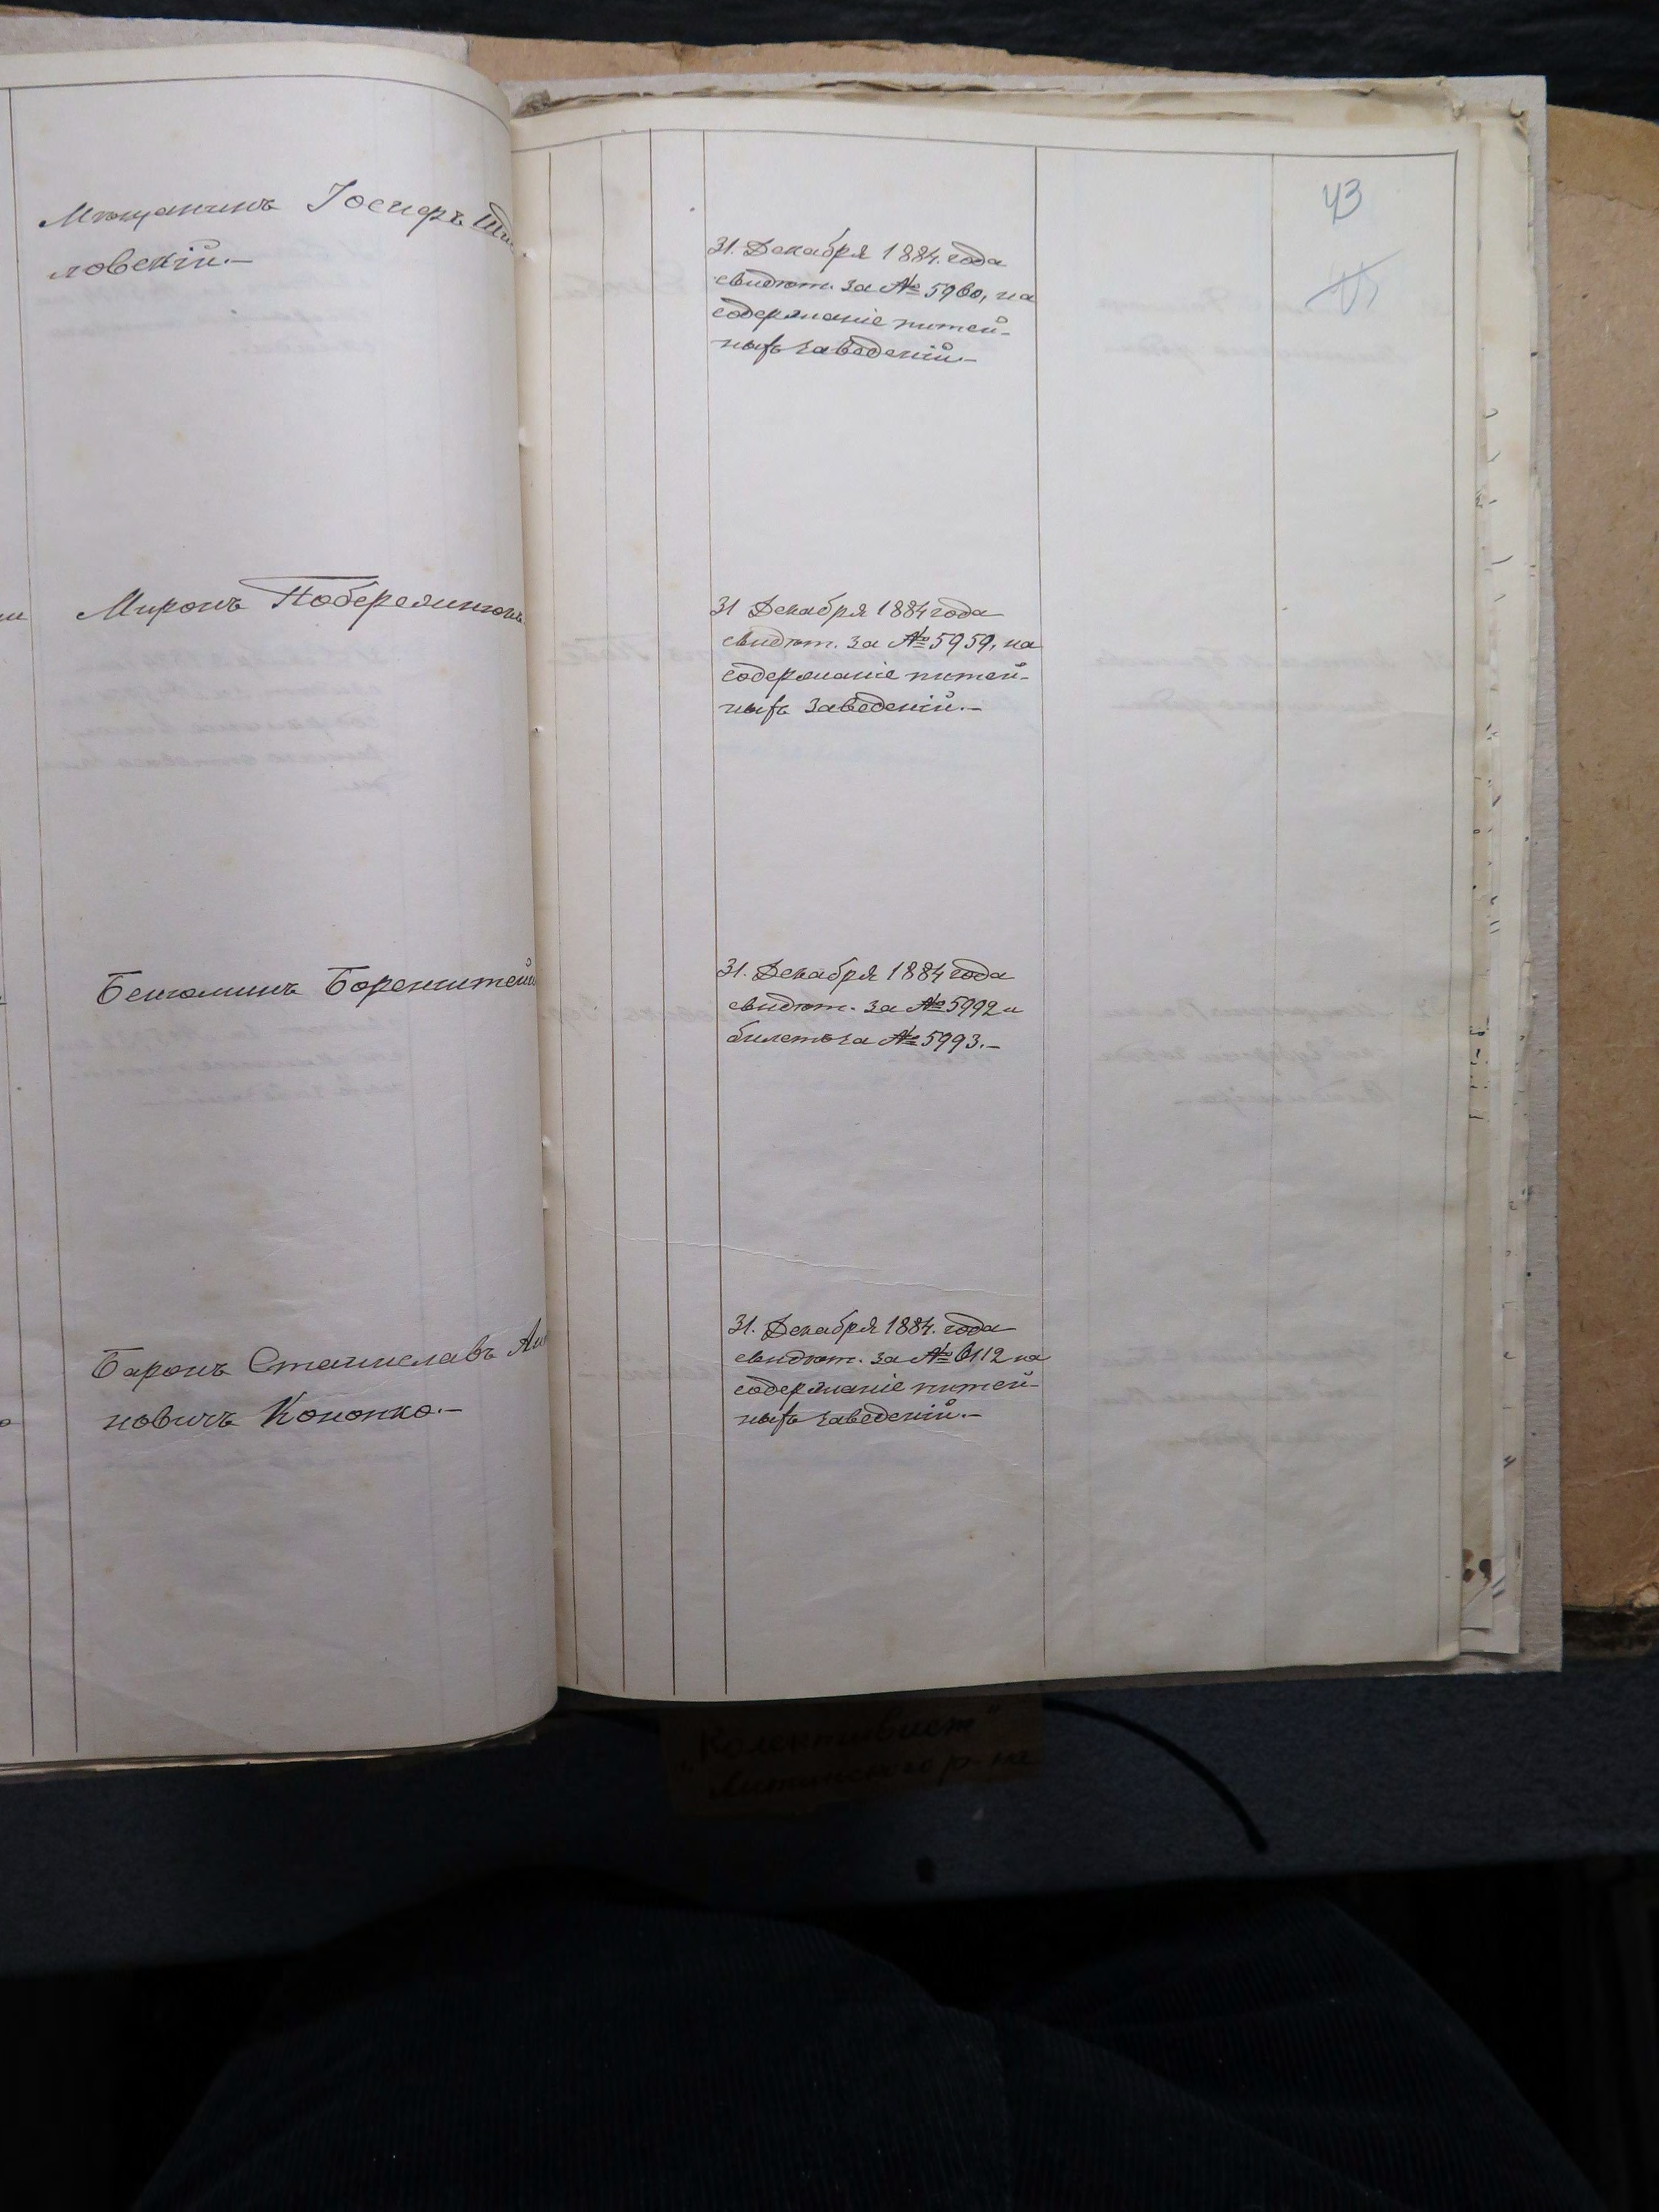 43
Мѣщанинъ Іосифъ Ши
ловскій.—
31. Декабря 1884. года
свидѣт. за № 5960, на
содержаніе питей-
ныхъ заведеній.—
Миронъ Побережнюкъ
31 Декабря 1884 года
свидѣт. за № 5959, на
содержаніе питей-
ныхъ заведеній.—
Беньоминъ Боренштейн
31. Декабря 1884 года
свидѣт. за № 5992 и
билетъ за № 5993.—
Баронъ Станиславъ Ан
новичъ Конопко.—
31. Декабря 1884. года
свидѣт. за № 6112 на
содержаніе питей-
ныхъ заведеній.—
"Колективист"
Литинського р-на